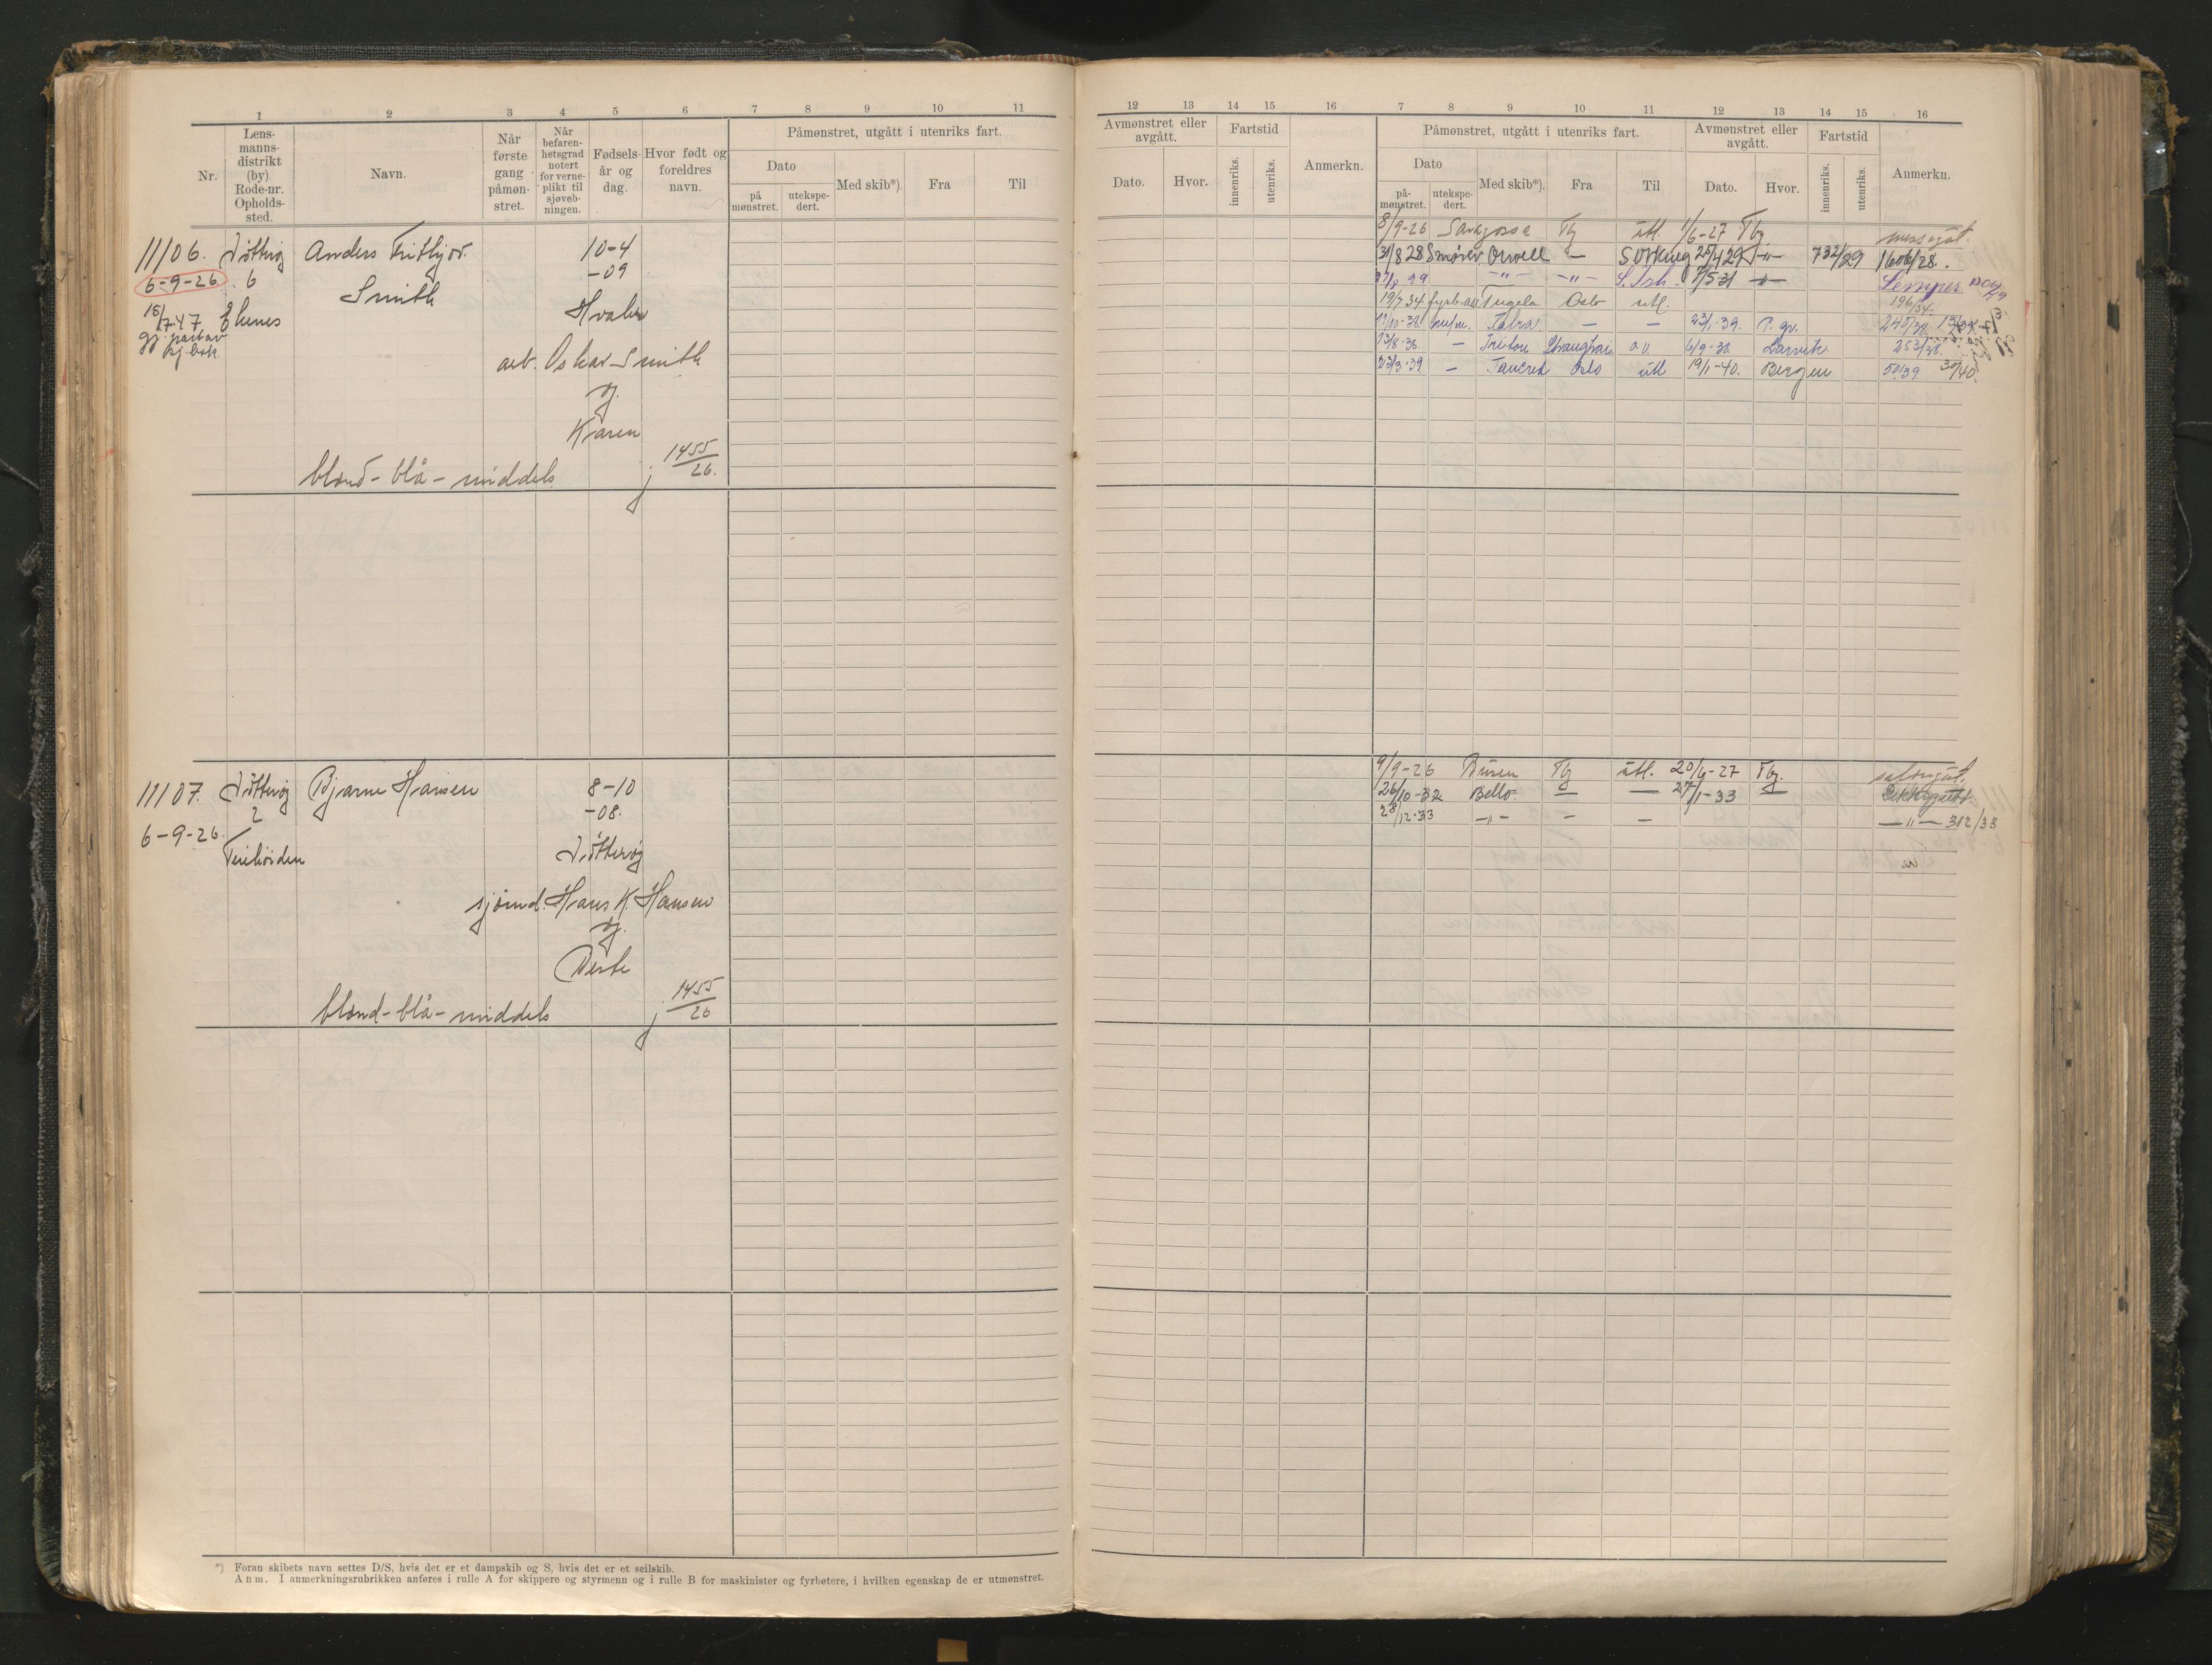 1 2 3 4 5 6 7 8 9 10 11
Nr.
Lens-
manns-
distrikt
(by)
Rode-nr.
Opholds-
sted.
Navn.
Når
første
gang
påmøn-
stret.
Når
befaren-
hetsgrad
notert
for verne-
plikt til
sjøveb-
ningen.
Fødsels-
år og
dag.
Hvor født og
foreldres
navn.
Påmønstret, utgått i utenriks fart.
Dato
på
mønstret.
utekspe-
dert.
Med skib*).
Fra
Til
11106. Nøtterøy Anders Frithjof 10-4
6-9-26 6 Smith -09
15/7-47 Ekenes Hvaler
arb. Oskar Smith
og
Karen
blond - blå - middels j 1455/26.
11107. Nøtterøy Bjarne Hansen 8-10
2 -08.
6-9-26. Nøtterøy
sjømd. Hans K. Hansen
og
Berte
blond - blå - middels j 1455/26
*) Foran skibets navn settes D/S, hvis det er et dampskib og S, hvis det er et seilskib.
Anm. I anmerkningsrubrikken anføres i rulle A for skippere og styrmenn og i rulle B for maskinister og fyrbøtere, i hvilken egenskap de er utmønstret.
12 13 14 15 16 7 8 9 10 11 12 13 14 15 16
Avmønstret eller
avgått.
Dato.
Hvor.
Fartstid
innenriks.
utenriks.
Anmerkn.
Påmønstret, utgått i utenriks fart.
Dato
på-
mønstret.
utekspe-
dert.
Med skib*).
Fra
Til
Avmønstret eller
avgått.
Dato.
Hvor.
Fartstid
innenriks.
utenriks.
Anmerkn.
8/9-26 Saragossa Tbg utl. 1/6-27 Tbg. messegut.
31/8 28 Smører Orwell — 25/4 29 —"— 732/29 1606/28.
27/8 29 —"— —"— 7/5 31 —"— Lemper
19/7 34 Tugela Oslo utl. 196/34
— — 23/1-39. P. gr. 240/38
13/8-38 — Triton Shanghai o.v. 6/9-38 Larvik 263/38.
23/3-39. — Tancred Oslo utl 19/1-40. Bergen 50/39 30/40.
9/9-26 Buren Tbg utl. 20/4-27 Tbg. salongut.
26/10-32 Bello. — — 27/1-33 — Dekksgutt
28/12-33 —"— — — —"— 312/33